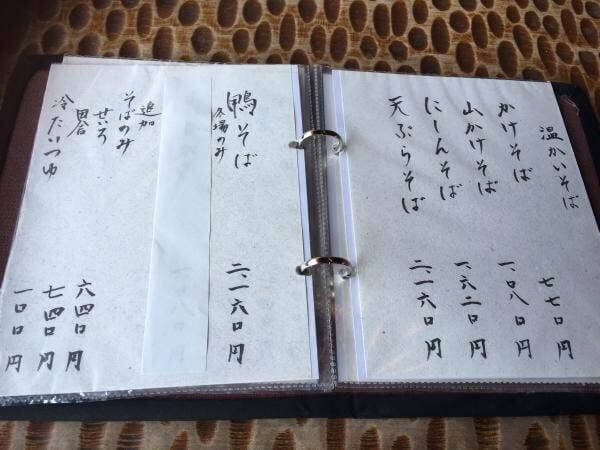 温かいそば
かけそば 七七〇円
山かけそば 一、〇八〇円
にしんそば 一、六二〇円
天ぷらそば 二、一六〇円
鴨そば 二、一六〇円
冬場のみ
追加
そばのみ
せいろ 六四〇円
田舎 七四〇円
冷たいつゆ 一〇〇円